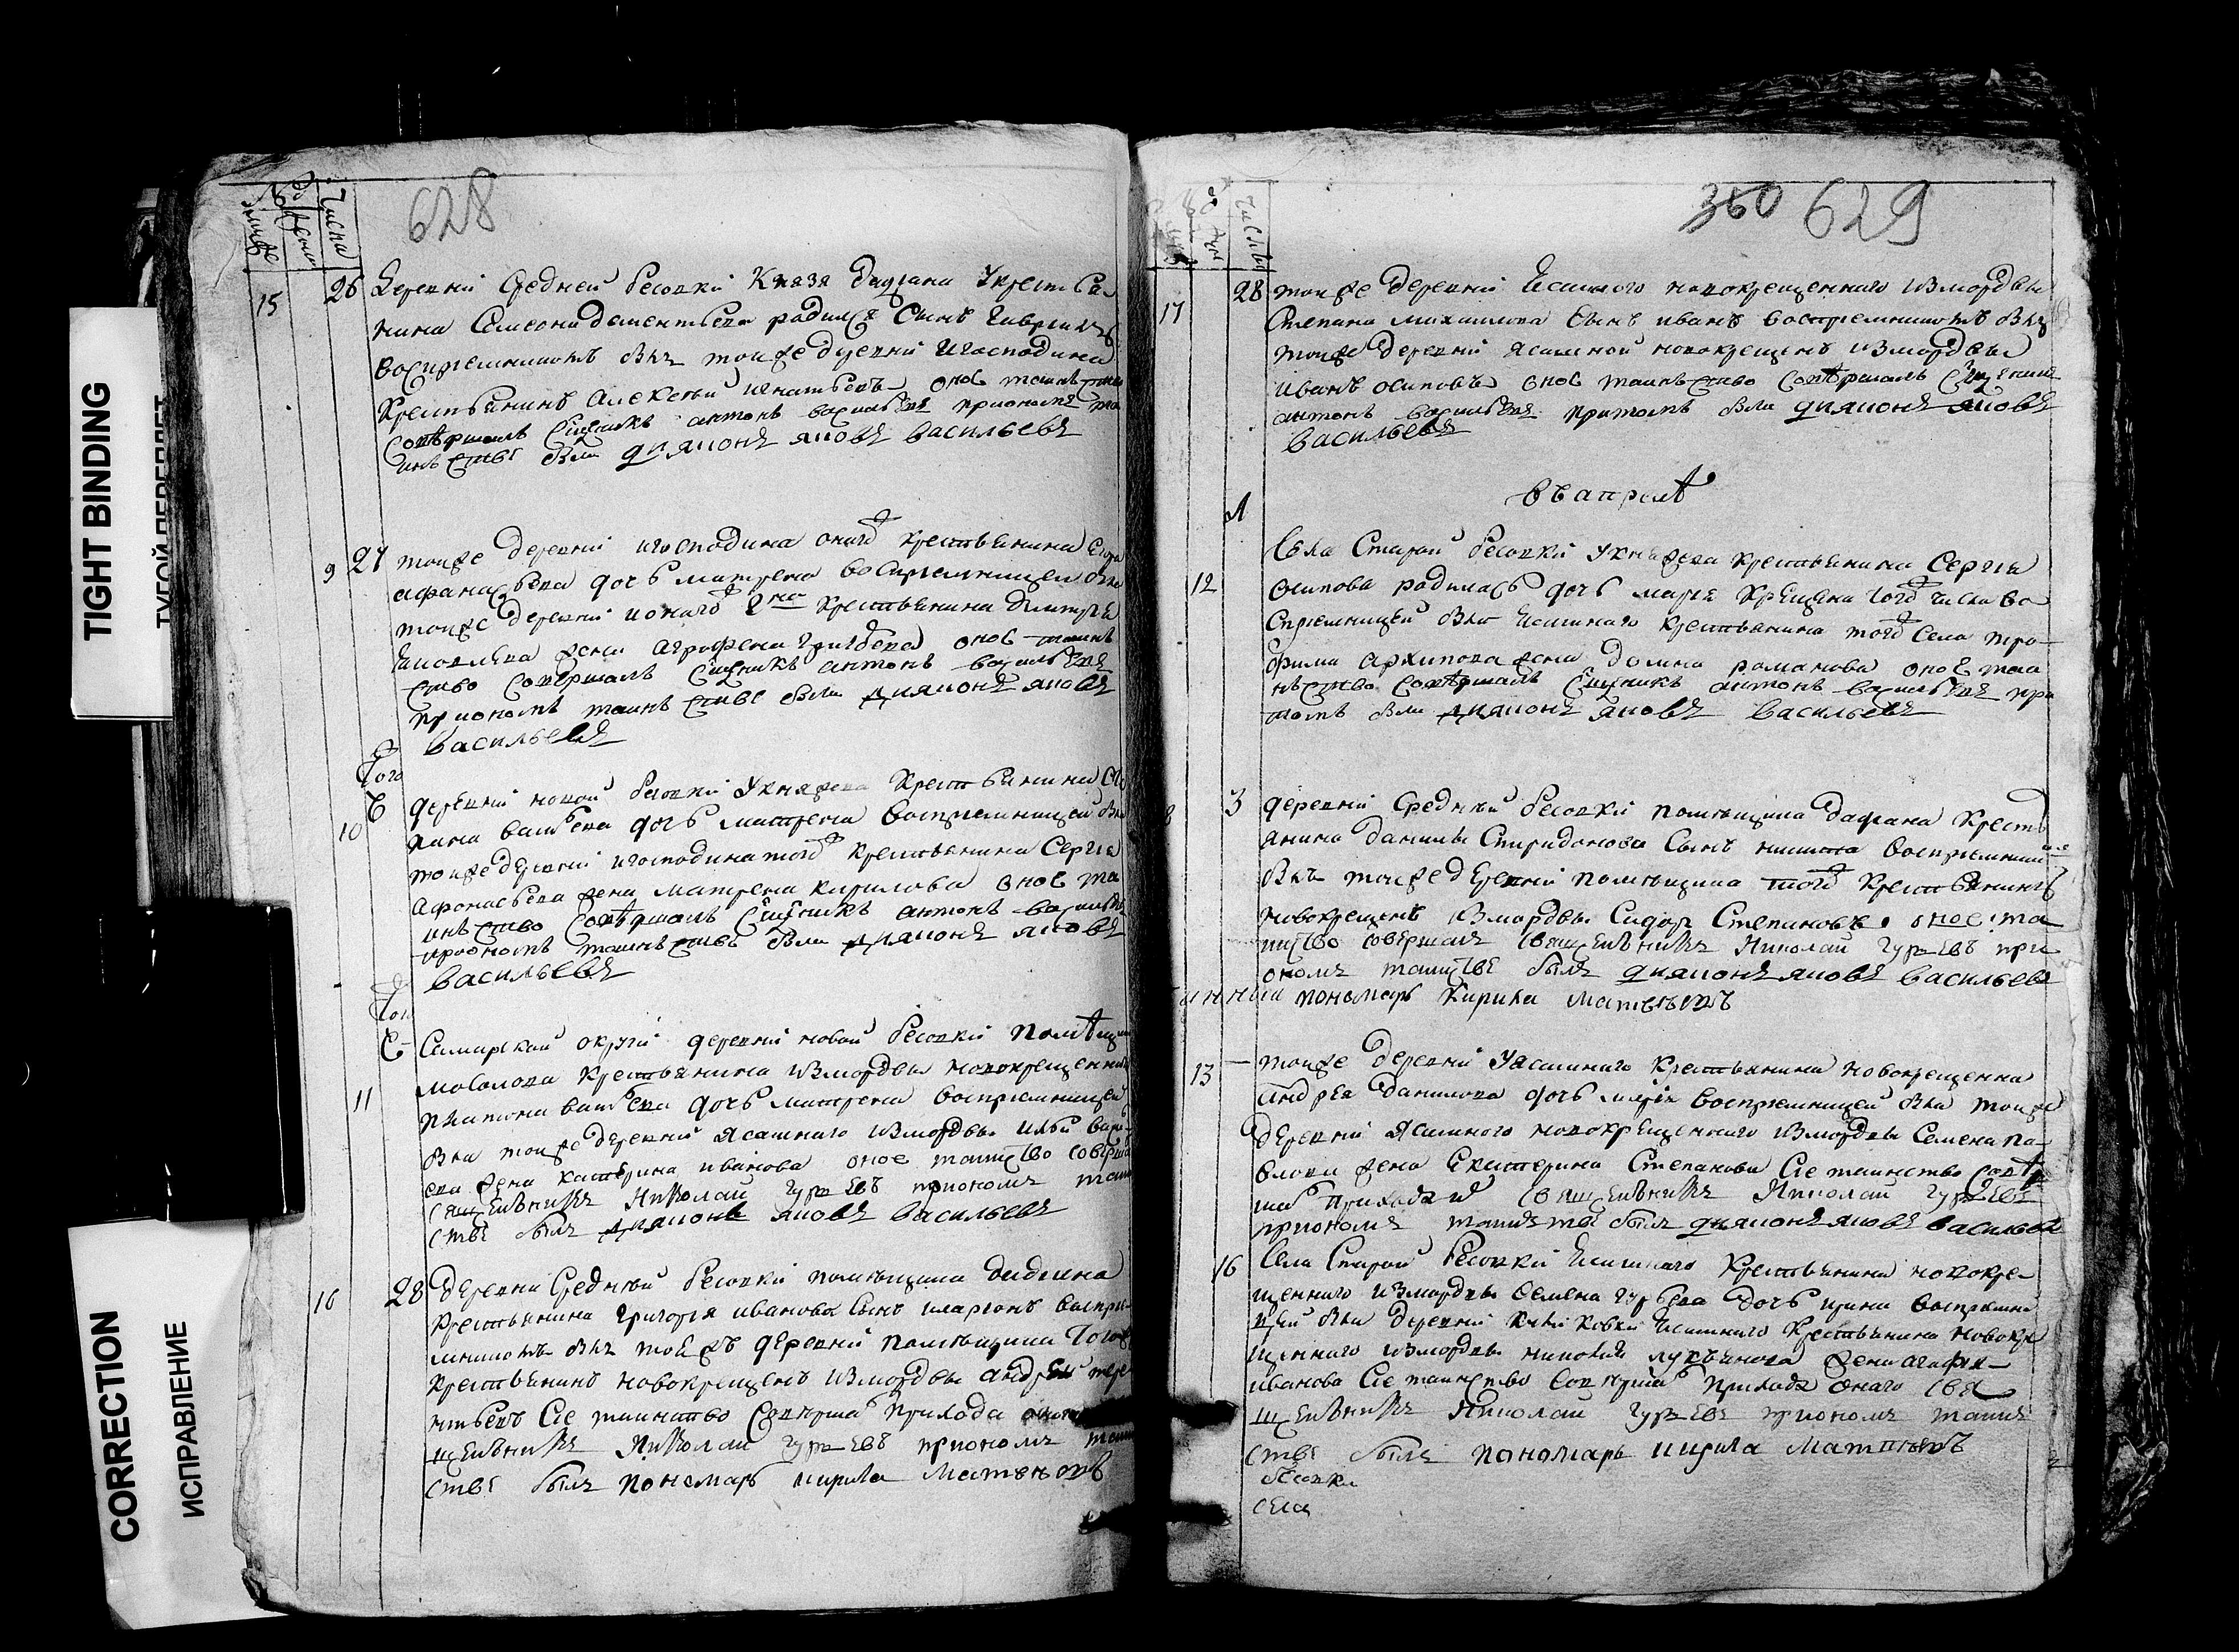 TIGHT BINDING
ТУГОЙ ПЕРЕПЛЕТ
CORRECTION
ИСПРАВЛЕНИЕ
628
числа
15
26 деревни Средней Бесовки Князя дадиана крестья
нина Симеона дементьева родился Сынъ Гаврилъ
воспремникомъ былъ тойже деревни игосподина
крестьянинъ Алексей игнатьевъ оное таинство
совѣршалъ Сщенникъ антонъ васильевъ приономъ та
инъстве были диаконъ яковъ васильевъ
9 27 тойже деревни игосподина оного крестьянина
афанасьева дочь матрена воспремницей была
тойже деревни ионого крестьянина дмитрея
яковлева жена аграфена оное таинъ
ство совершалъ Сщенникъ антонъ васильевъ
приономъ таинъстве были диаконъ яковъ
васильевъ
Того
10 деревни новой бесовки князева крестьянина
дочь матрена воспремницей была
тойже деревни игосподина того крестьянина Сергея
Афонасьева жена матрена кирилова оное та
инъство совѣршалъ Сщенникъ антонъ васильевъ
приономъ таинъстве были диаконъ яковъ
васильевъ
Того
11 Самарской округи деревни новой бесовки помѣщика
мосолова крестьянина измордвы новокрещеннаго
дочь матрена воспремницей
была тойже деревни Ясашнаго измордвы
жена катерина иванова оное таинство соверша
священникъ Николай гурьевъ приономъ таин
стве былъ диаконъ яковъ васильевъ
16 28 деревни Средней бесовки помещика дадиена
крестьянина григорья иванова Сынъ иларионъ воспри
мникомъ былъ тойжъ деревни помещика тогожъ
крестьянинъ новокрещенъ измордвы андрей тере
нтьевъ Сие таинство Совершалъ прихода оного
щенникъ Николай гурьевъ приономъ таин
стве былъ пономарь кирила матвеевъ
350 629
числы
17 28 тойже деревни Ясашного новокрещенного измордвы
Степана михайлова Сынъ иванъ воспремникомъ былъ
тойже деревни ясашной новокрещенъ измордвы
иванъ осиповъ оное таинъство совѣршалъ Сщенникъ
антонъ васильевъ притомъ были диаконъ яковъ
васильевъ
въ апрелѣ
12 1 Села Старой бесовки князева крестьянина Сергея
осипова родилась дочь марья крещена того числа во
спремницей была Ясашнаго крестьянина того Села тро
фима архипова жена домна романова оное таи
нъство совѣршалъ Сщенникъ антонъ васильевъ при
томъ были диаконъ яковъ васильевъ
3 деревни Средней бесовки помещика дадиана кресть
янина данилы Спиридонова Сынъ никита воспремником
былъ тойже деревни помещика того крестьянинъ
новокрещенъ измордвы Сидоръ Степановъ оное та
инство совершалъ священникъ Николай гурьевъ при
ономъ таинстве былъ диаконъ яковъ васильевъ
пономарь Кирила матвеевъ
13 тойже деревни Ясашнаго крестьянина новокрещенна
андрея данилова дочь марья воспремницей была тойже
деревни Ясашного новокрещенного измордвы Семена па
влова жена Екатерина Степанова Сие таинство совѣр
шал прихода священникъ Николай гурьевъ
приономъ таинстве былъ диаконъ яковъ васильевъ
16 Села Старой бесовки Ясашнаго крестьянина новокре
щеннаго измордвы Семена гурьева дочь ирина воспремни
цей была деревни Ясашнаго крестьянина новокре
щеннаго измордвы лукьянова жена агафья
иванова Сие таинство Совершал прихода оного свя
щенникъ Николай гурьевъ приономъ таин
стве былъ пономарь кирила матвеевъ
бесовки
села